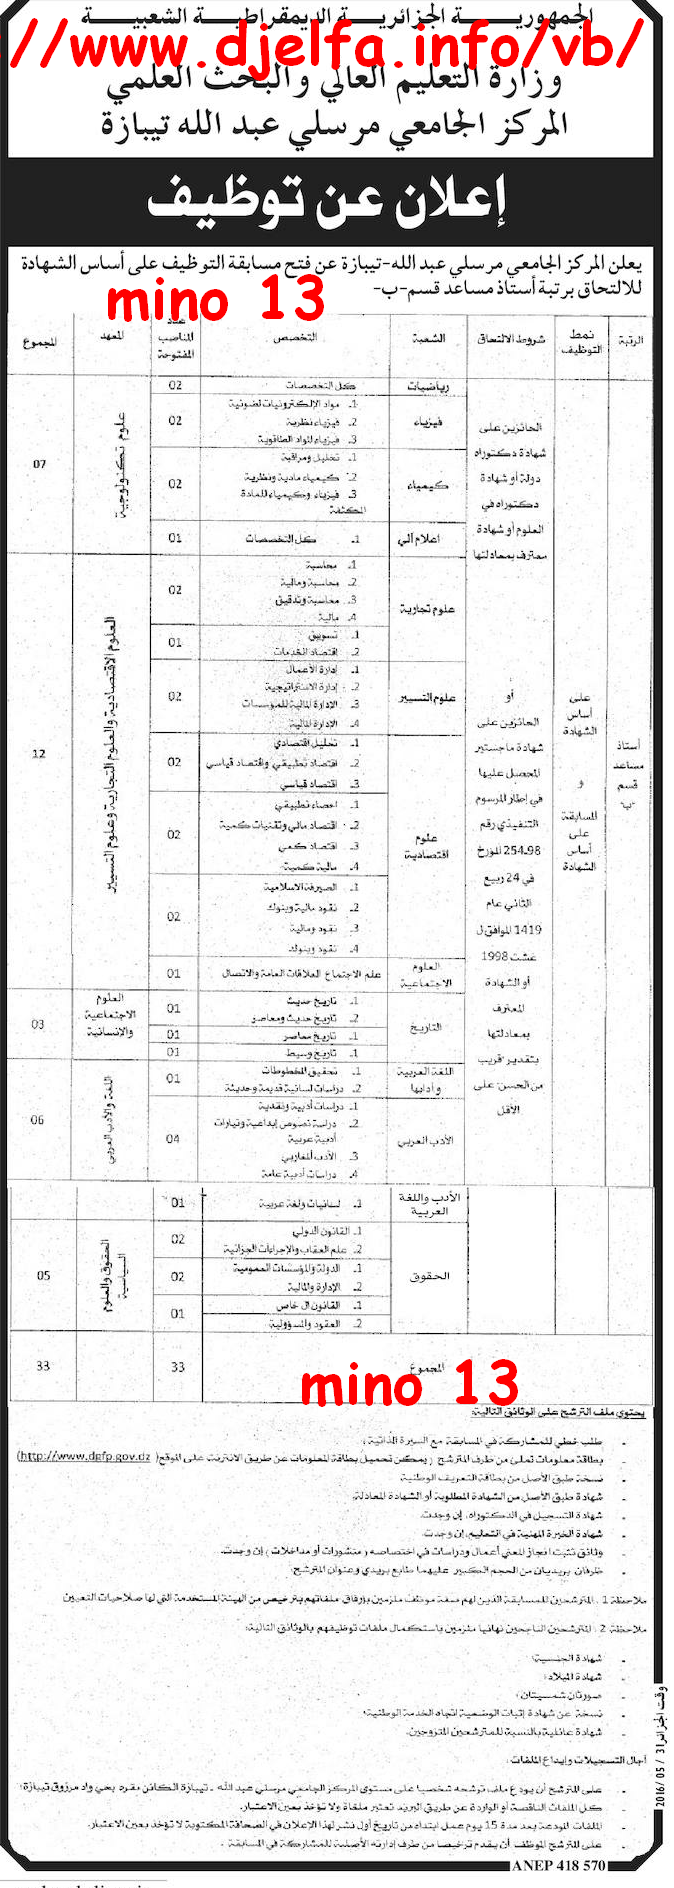 الجمهوريـــة الجزائريـــة الديمقراطيـــة الشعبيـــة
//www.djelfa.info/vb/
وزارة التعليم العالي والبحث العلمي
المركز الجامعي مرسلي عبد الله تيبازة
إعلان عن توظيف
يعلن المركز الجامعي مرسلي عبد الله-تيبازة عن فتح مسابقة التوظيف على أساس الشهادة
للالتحاق برتبة أستاذ مساعد قسم-ب-
mino 13
الرتبة
نمط التوظيف
شروط الالتحاق
الشعبة
التخصص
عدد المناصب المفتوحة
المعهد
المجموع
أستاذ مساعد قسم "ب"
على أساس الشهادة
و
المسابقة على أساس الشهادة
الحائزين على
شهادة دكتوراه
دولة أو شهادة
دكتوراه في
العلوم أو شهادة
معترف بمعادلتها
أو
الحائزين على
شهادة ماجستير
المحصل عليها
في إطار المرسوم
التنفيذي رقم
254.98 المؤرخ
في 24 ربيع
الثاني عام
1419 الموافق ل
غشت 1998
أو الشهادة
المعترف
بمعادلتها
بتقدير قريب
من الحسن على
الأقل
علوم تكنولوجية
07
رياضيات
كل التخصصات
02
فيزياء
1. مواد الإلكترونيات لضوئية
2. فيزياء نظرية
3. فيزياء المواد الطاقوية
02
كيمياء
1. تحليل ومراقبة
2. كيمياء مادية ونظرية
3. فيزياء وكيمياء للمادة
المكثفة
02
اعلام الي
1. كل التخصصات
01
العلوم الاقتصادية والعلوم التجارية وعلوم التسيير
12
علوم تجارية
1. محاسبة
2. محاسبة ومالية
3. محاسبة وتدقيق
4. مالية
02
1. تسويق
2. إقتصاد الخدمات
01
علوم التسيير
1. إدارة الأعمال
2. إدارة الاستراتيجية
3. الإدارة المالية للمؤسسات
4. الإدارة المالية
02
علوم اقتصادية
1. تحليل اقتصادي
2. اقتصاد تطبيقي واقتصاد قياسي
3. اقتصاد قياسي
02
1. احصاء تطبيقي
2. اقتصاد مالي وتقنيات كمية
3. اقتصاد كمي
4. مالية كمية
02
1. الصيرفة الاسلامية
2. نقود مالية وبنوك
3. نقود ومالية
4. نقود وبنوك
02
العلوم الاجتماعية والإنسانية
03
العلوم الاجتماعية
علم الاجتماع العلاقات العامة والاتصال
01
التاريخ
1. تاريخ حديث
2. تاريخ حديث ومعاصر
01
1. تاريخ معاصر
01
1. تاريخ وسيط
01
اللغة والأدب العربي
06
اللغة العربية وأدابها
1. تحقيق المخطوطات
2. دراسات لسانية قديمة وحديثة
01
الأدب العربي
1. دراسات أدبية ونقدية
2. دراسة نصوص إبداعية وتيارات
أدبية عربية
3. الأدب المغاربي
4. دراسات أدبية عامة
04
الأدب واللغة العربية
1. لسانيات ولغة عربية
01
الحقوق والعلوم السياسية
05
الحقوق
1. القانون الدولي
2. علم العقاب والإجراءات الجزائية
02
1. الدولة والمؤسسات العمومية
2. الإدارة والمالية
02
1. القانون ال خاص
2. العقود والمسؤولية
01
المجموع
33
33
mino 13
يحتوي ملف الترشح على الوثائق التالية:
- طلب خطي للمشاركة في المسابقة مع السيرة الذاتية؛
- بطاقة معلومات تملئ من طرف المترشح (يمكن تحميل بطاقة المعلومات عن طريق الانترنت على الموقع (http://www.dgfp.gov.dz)
- نسخة طبق الأصل من بطاقة التعريف الوطنية
- شهادة طبق الأصل من الشهادة المطلوبة أو الشهادة المعادلة،
- شهادة التسجيل في الدكتوراه، إن وجدت.
- شهادة الخبرة المهنية في التعليم، إن وجدت.
- وثائق تثبت انجاز المعني أعمال ودراسات في اختصاصه (منشورات أو مداخلات) إن وجدت.
- ظرفان بريديان من الحجم الكبير عليهما طابع بريدي وعنوان المترشح.
ملاحظة 1 : المترشحين للمسابقة الذين لهم صفة موظف ملزمين بإرفاق ملفاتهم بترخيص من الهيئة المستخدمة التي لها صلاحيات التعيين
ملاحظة 2 : المترشحين الناجحين نهائيا ملزمين باستكمال ملفات توظيفهم بالوثائق التالية:
- شهادة الجنسية؛
- شهادة الميلاد؛
- صورتان شمسيتان؛
- نسخة عن شهادة إثبات الوضعية اتجاه الخدمة الوطنية؛
- شهادة عائلية بالنسبة للمترشحين المتزوجين.
آجال التسجيلات وإيداع الملفات:
- على المترشح أن يودع ملف ترشحه شخصيا على مستوى المركز الجامعي مرسلي عبد الله - تيبازة الكائن مقره بحي واد مرزوق تيبازة؛
- كل الملفات الناقصة أو الواردة عن طريق البريد تعتبر ملغاة ولا تؤخذ بعين الاعتبار.
- الملفات المودعة بعد مدة 15 يوم عمل ابتداء من تاريخ أول نشر لهذا الإعلان في الصحافة المكتوبة لا تؤخذ بعين الاعتبار.
- على المترشح الموظف أن يقدم ترخيصا من طرف إدارته الأصلية للمشاركة في المسابقة .
وقت الجزائر 31 / 05 / 2016
ANEP 418 570